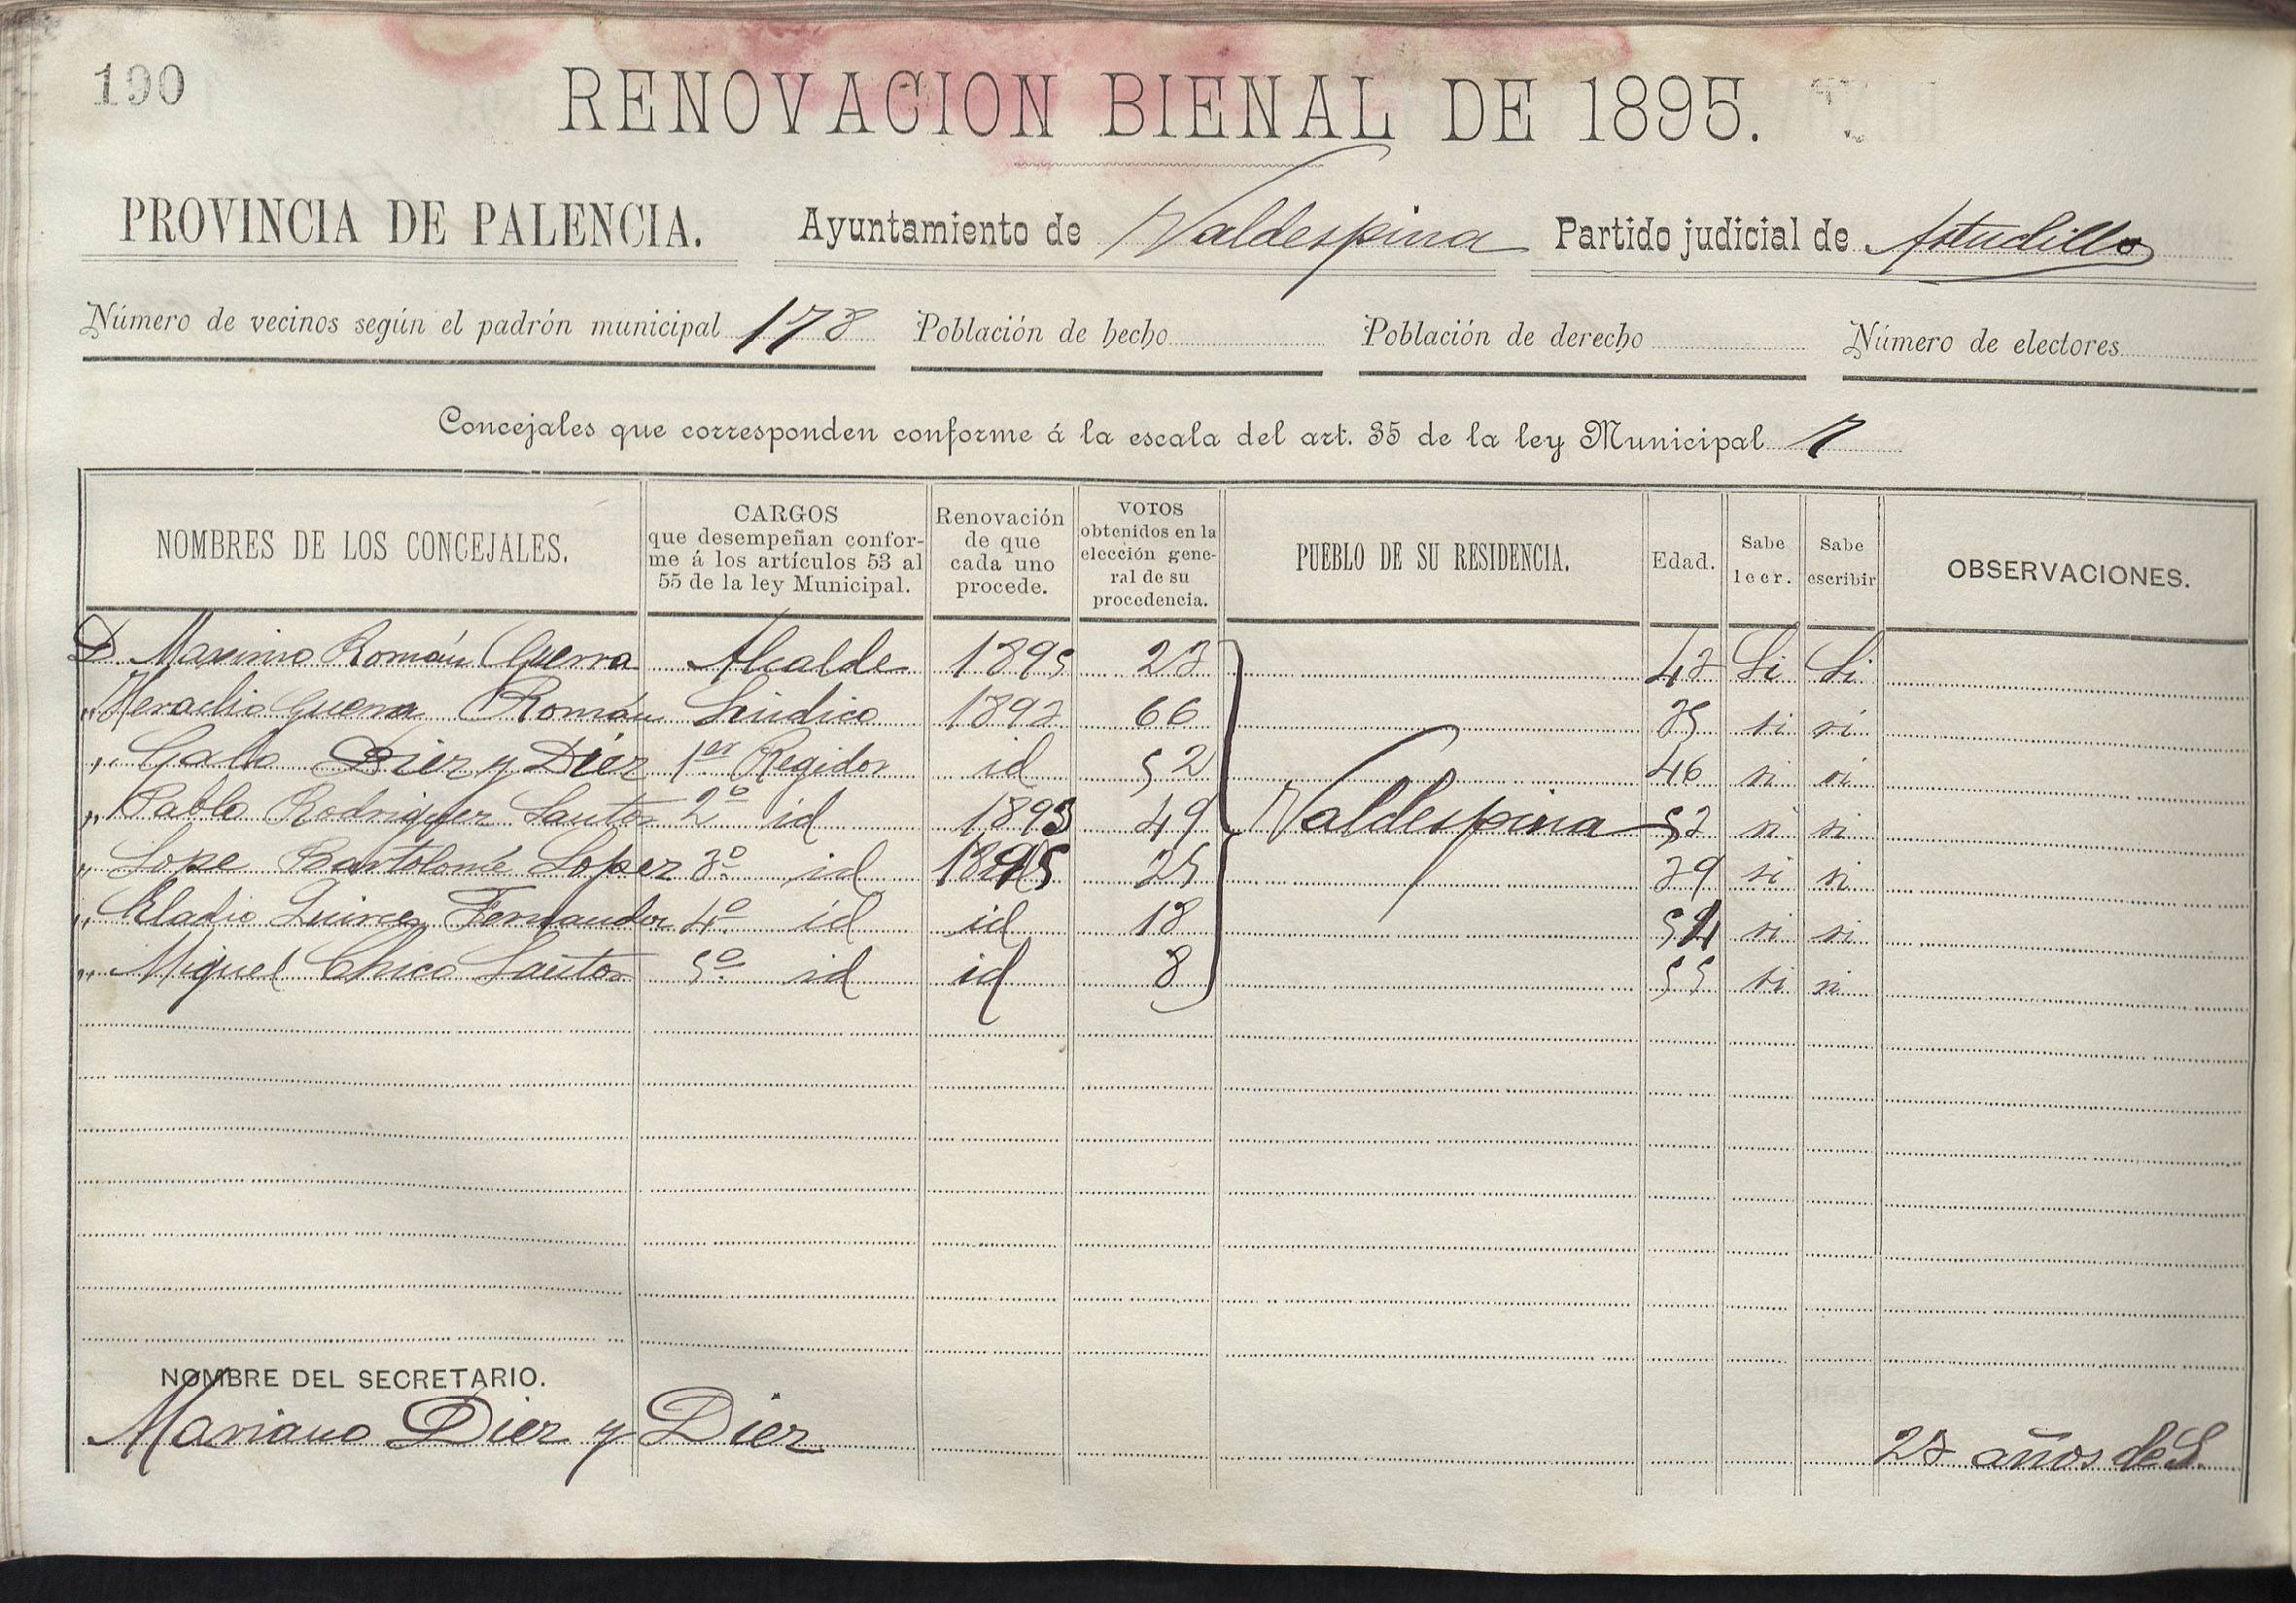 190
RENOVACION BIENAL DE 1895.
PROVINCIA DE PALENCIA. Ayuntamiento de Valdespina Partido judicial de Astudillo
Número de vecinos según el padrón municipal 178 Población de hecho Población de derecho Número de electores
Concejales que corresponden conforme á la escala del art. 35 de la ley Municipal 7
NOMBRES DE LOS CONCEJALES.
CARGOS
que desempeñan confor-
me á los artículos 53 al
55 de la ley Municipal.
Renovación
de que
cada uno
procede.
VOTOS
obtenidos en la
elección gene-
ral de su
procedencia.
PUEBLO DE SU RESIDENCIA.
Edad.
Sabe
leer.
Sabe
escribir
OBSERVACIONES.
D. Maximo Román Guerra Alcalde 1895 Si Si
" Heraclio Guerra Román Síndico 66 si si
" Gallo Diez y Diez 1er Regidor id 52 46 si si
" Pablo Rodriguez Santos 2º id 1893 49 Valdespina si si
" Lope Bartolomé Lopez 3º id 1895 25 si si
" Eladio Quirce Fernandez 4º id id 18 54 si si
" Miguel Chico Santos 5º id id 8 55 si si
NOMBRE DEL SECRETARIO.
Mariano Diez y Diez años de S.